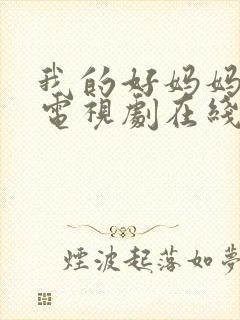 我的好妈妈
電視劇在綫
煙波起落如夢